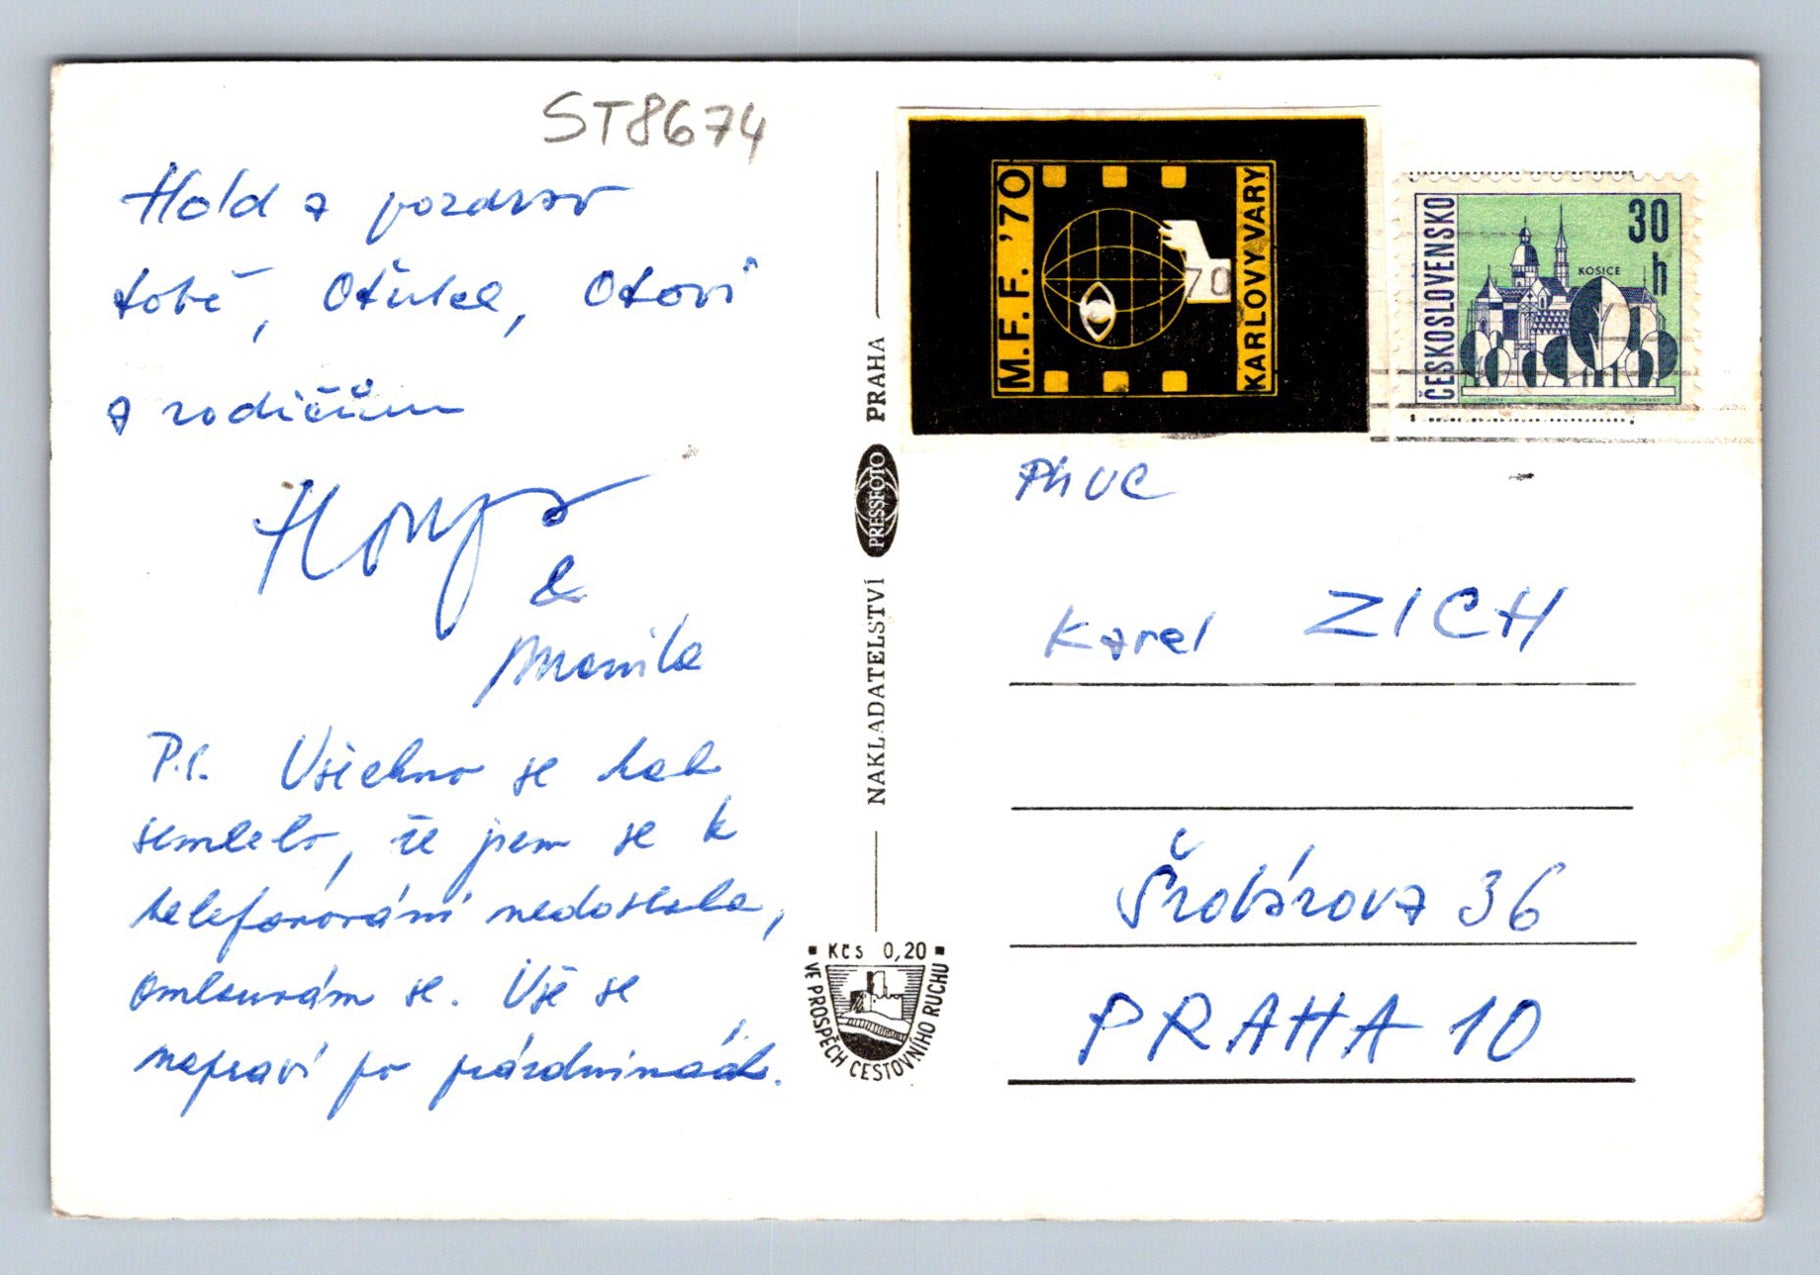 ST8674
Hold a pozdrav
tobě, Otulce, Otovi
a rodičům
Honza
&
Marmila
P.S. Všechno se tak
semlelo, že jsem se k
telefonování nedostala,
omlouvám se. Vše se
napraví po prázdninách.
NAKLADATELSTVÍ PRESSFOTO PRAHA
Kčs 0,20
VE PROSPĚCH CESTOVNÍHO RUCHU
M.F.F. '70
KARLOVY VARY
70
ČESKOSLOVENSKO
30
h
KOŠICE
PhUC
Karel ZICH
Šrobárova 36
PRAHA 10